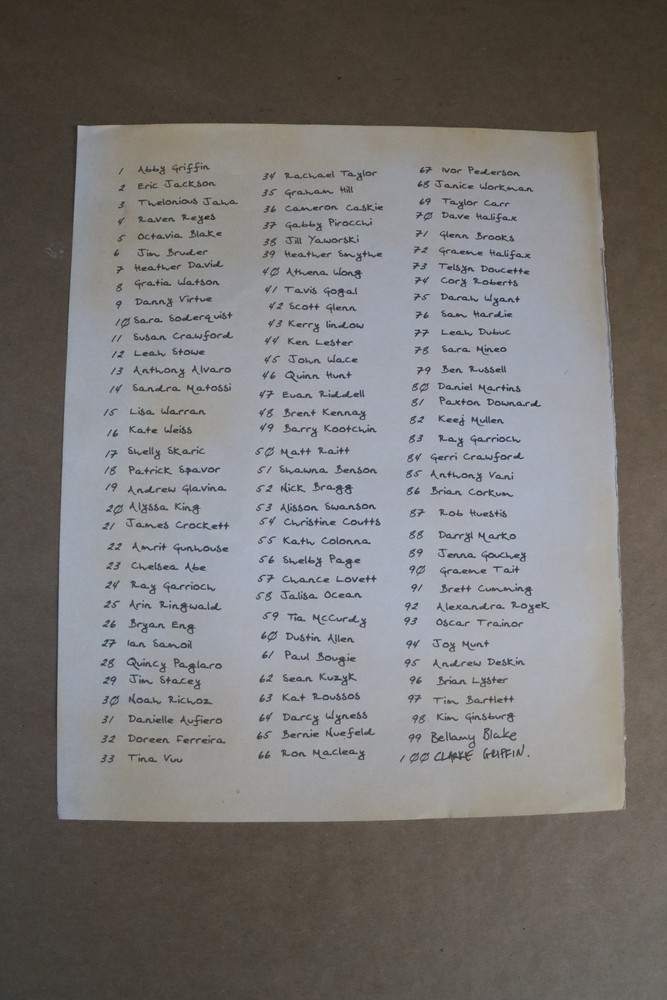 1 Abby Griffin
2 Eric Jackson
3 Thelonious Jaha
4 Raven Reyes
5 Octavia Blake
6 Jim Bruder
7 Heather David
8 Gratia Watson
9 Danny Virtue
10 Sara Soderquist
11 Susan Crawford
12 Leah Stowe
13 Anthony Alvaro
14 Sandra Matossi
15 Lisa Warran
16 Kate Weiss
17 Shelly Skaric
18 Patrick Spavor
19 Andrew Glavina
20 Alyssa King
21 James Crockett
22 Amrit Gunhouse
23 Chelsea Abe
24 Ray Garrioch
25 Arin Ringwald
26 Bryan Eng
27 Ian Samoil
28 Quincy Paglaro
29 Jim Stacey
30 Noah Richoz
31 Danielle Aufiero
32 Doreen Ferreira
33 Tina Vuu
34 Rachael Taylor
35 Graham Hill
36 Cameron Caskie
37 Gabby Pirocchi
38 Jill Yaworski
39 Heather Smythe
40 Athena Wong
41 Tavis Gogal
42 Scott Glenn
43 Kerry lindow
44 Ken Lester
45 John Wace
46 Quinn Hunt
47 Euan Riddell
48 Brent Kennay
49 Barry Kootchin
50 Matt Raitt
51 Shawna Benson
52 Nick Bragg
53 Alisson Swanson
54 Christine Coutts
55 Kath Colonna
56 Shelby Page
57 Chance Lovett
58 Jalisa Ocean
59 Tia McCurdy
60 Dustin Allen
61 Paul Bougie
62 Sean Kuzyk
63 Kat Roussos
64 Darcy Wyness
65 Bernie Nuefeld
66 Ron Macleay
67 Ivor Pederson
68 Janice Workman
69 Taylor Carr
70 Dave Halifax
71 Glenn Brooks
72 Graeme Halifax
73 Telsyn Doucette
74 Cory Roberts
75 Darah Wyant
76 Sam Hardie
77 Leah Dubuc
78 Sara Mineo
79 Ben Russell
80 Daniel Martins
81 Paxton Downard
82 Keej Mullen
83 Ray Garrioch
84 Gerri Crawford
85 Anthony Vani
86 Brian Corkum
87 Rob Huestis
88 Darryl Marko
89 Jenna Gouchey
90 Graeme Tait
91 Brett Cumming
92 Alexandra Royek
93 Oscar Trainor
94 Joy Munt
95 Andrew Deskin
96 Brian Lyster
97 Tim Bartlett
98 Kim Ginsburg
99 Bellamy Blake
100 CLARKE GRIFFIN.